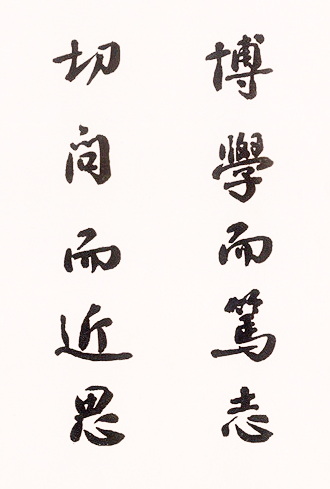 博學而篤志
切問而近思